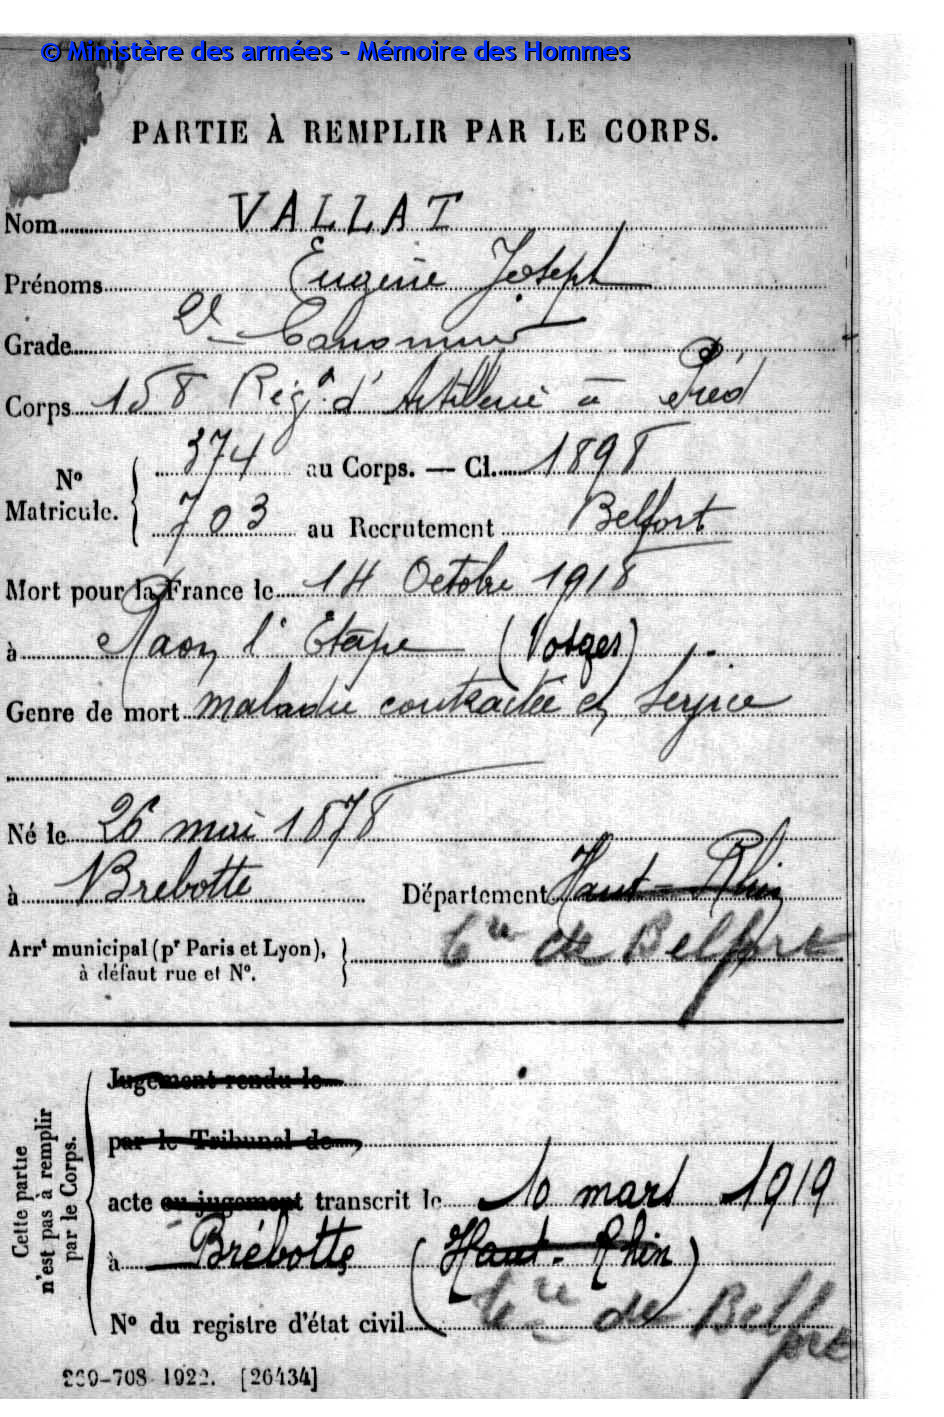 © Ministère des armées - Mémoire des Hommes
PARTIE À REMPLIR PAR LE CORPS.
Nom VALLAT
Prénoms Eugène Joseph
Grade 2e Canonnier
Corps 158 Régt d'Artillerie à Pied
No Matricule. 374 au Corps. — Cl. 1898
703 au Recrutement Belfort
Mort pour la France le 14 Octobre 1918
à Raon l'Etape (Vosges)
Genre de mort maladie contractée en Service
Né le 26 mai 1878
à Brebotte Département Haut-Rhin
Arrt municipal (pr Paris et Lyon), à défaut rue et No. Tre de Belfort
Cette partie n'est pas à remplir par le Corps.
Jugement rendu le
par le Tribunal de
acte ou jugement transcrit le 10 mars 1919
à Brébotte (Haut-Rhin)
Tre de Belfort
No du registre d'état civil
269-708 1922. [26434]